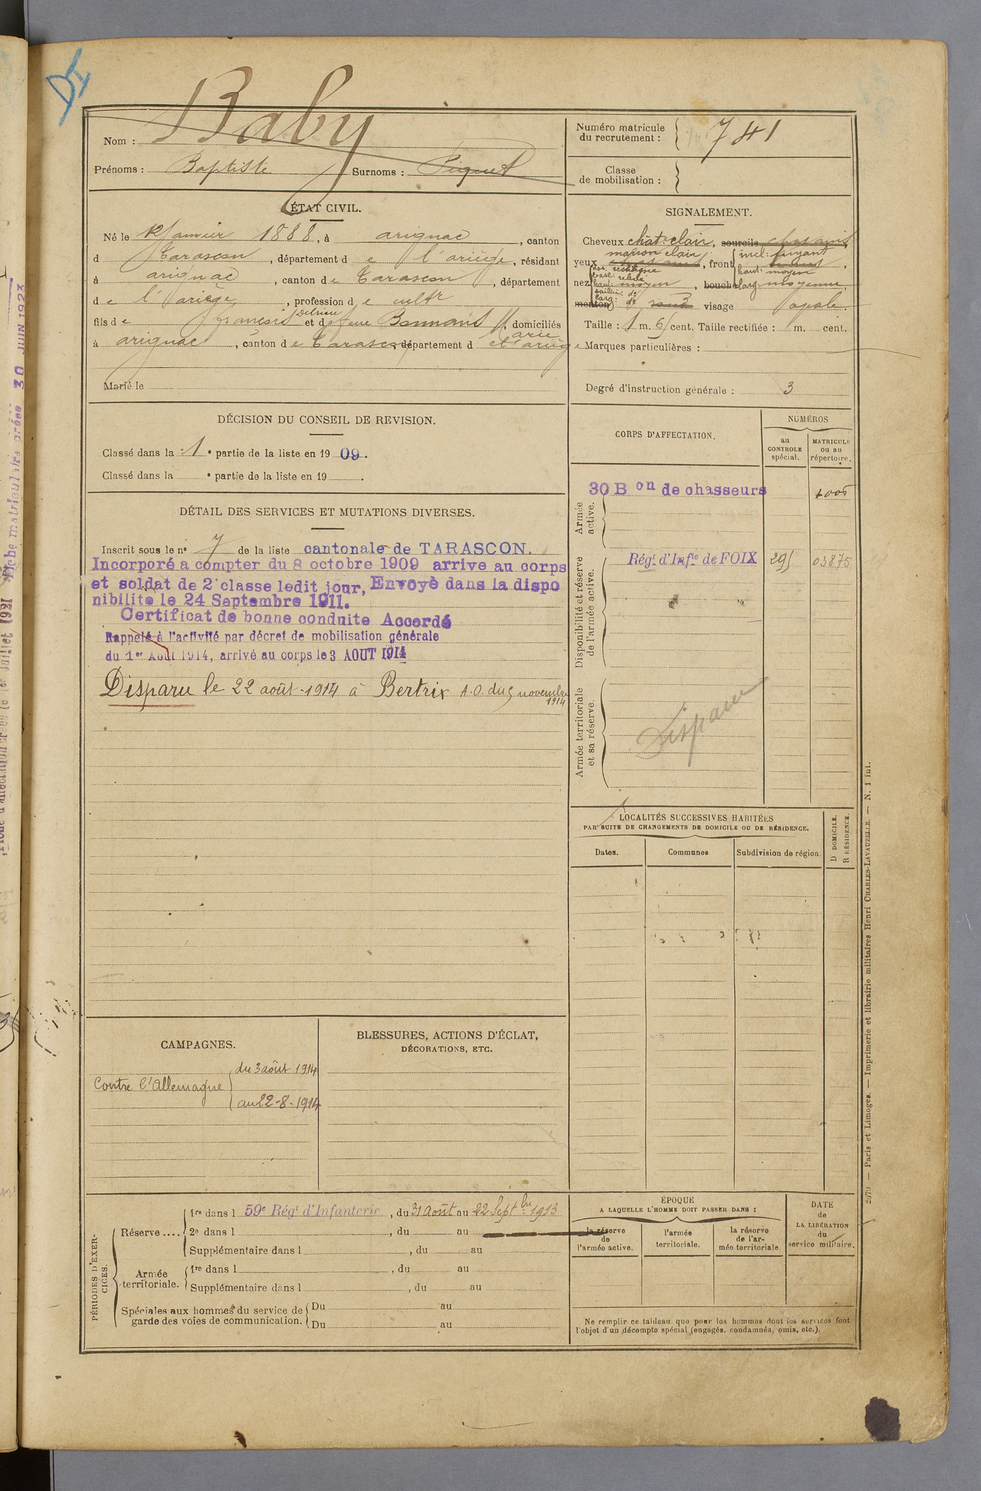 Baby
Nom :
Prénoms : Baptiste Surnoms :
Numéro matricule
du recrutement : 741
Classe
de mobilisation :
ÉTAT CIVIL.
Né le 12 Janvier 1888, à arignac, canton
d Tarascon, département d e l'ariège, résidant
à arignac, canton de Tarascon, département
de l'ariège, profession de cultr
fils de francois et de feue Bonnans Marie, domiciliés
à arignac, canton de Tarascon, département d et ariège
Marié le
SIGNALEMENT.
Cheveux chât-clair, sourcils
marron clair incl: fuyant
yeux , front haut: moyen
nez moyen, bouche larg: moyenne,
menton rond visage ovale
Taille : 1 m. 6 cent. Taille rectifiée : m. cent.
Marques particulières :
Degré d'instruction générale : 3
DÉCISION DU CONSEIL DE REVISION.
Classé dans la 1 e partie de la liste en 1909.
Classé dans la e partie de la liste en 19 .
DÉTAIL DES SERVICES ET MUTATIONS DIVERSES.
Inscrit sous le n° 7 de la liste cantonale de TARASCON.
Incorporé a compter du 8 octobre 1909 arrive au corps
et soldat de 2e classe ledit jour, Envoyè dans la dispo
nibilite le 24 Septembre 1911.
Certificat de bonne conduite Accordé
Rappelé à l'activité par décret de mobilisation générale
du 1er Août 1914, arrivé au corps le 3 AOUT 1914
Disparu le 22 août 1914 à Bertrix A.O. du 5 novembre
1914
CORPS D'AFFECTATION.
NUMÉROS
au
CONTROLE
spécial.
MATRICULE
ou au
répertoire.
Armée
active.
30 Bon de chasseurs
Disponibilité et réserve
de l'armée active.
Régt d'Infie de FOIX 295 03875
Armée territoriale
et sa réserve.
Disparu
LOCALITÉS SUCCESSIVES HABITÉES
PAR SUITE DE CHANGEMENTS DE DOMICILE OU DE RÉSIDENCE.
Dates. Communes Subdivision de région.
D DOMICILE.
R RÉSIDENCE.
CAMPAGNES.
Contre l'Allemagne du 3 août 1914
au 22-8-1914
BLESSURES, ACTIONS D'ÉCLAT,
DÉCORATIONS, ETC.
PÉRIODES D'EXER-
CICES.
Réserve ....
1re dans l 59e Régt d'Infanterie, du 31 août au 22 Septbre 1913
2e dans l , du au
Supplémentaire dans l , du au
Armée
territoriale.
1re dans l , du au
Supplémentaire dans l , du au
Spéciales aux hommes du service de
garde des voies de communication.
Du au
Du au
ÉPOQUE
A LAQUELLE L'HOMME DOIT PASSER DANS :
la réserve
de
l'armée active.
l'armée
territoriale.
la réserve
de l'ar-
mée territoriale.
DATE
de
LA LIBÉRATION
du
service militaire.
Ne remplir ce tableau que pour les hommes dont les services font
l'objet d'un décompte spécial (engagés, condamnés, omis, etc.).
Paris et Limoges. — Imprimerie et librairie militaires Henri CHARLES-LAVAUZELLE. — N. 1 int.
Fiche matriculaire créée 30 JUIN 1923